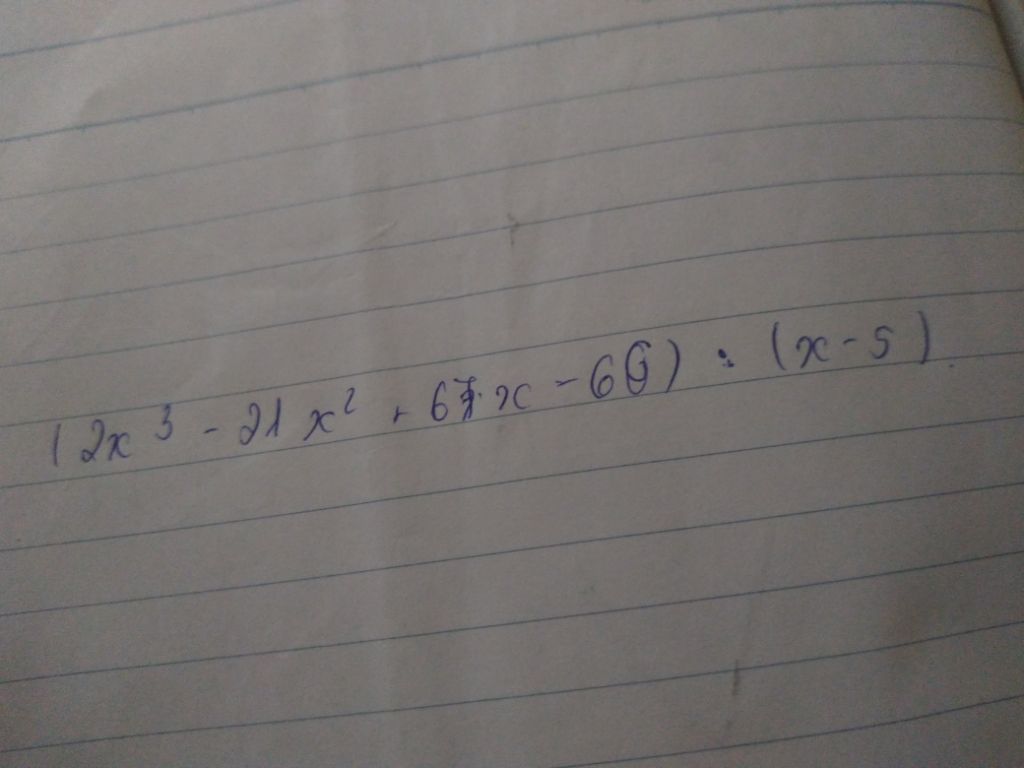 (2x³ - 21x² + 67x - 60) : (x - 5)